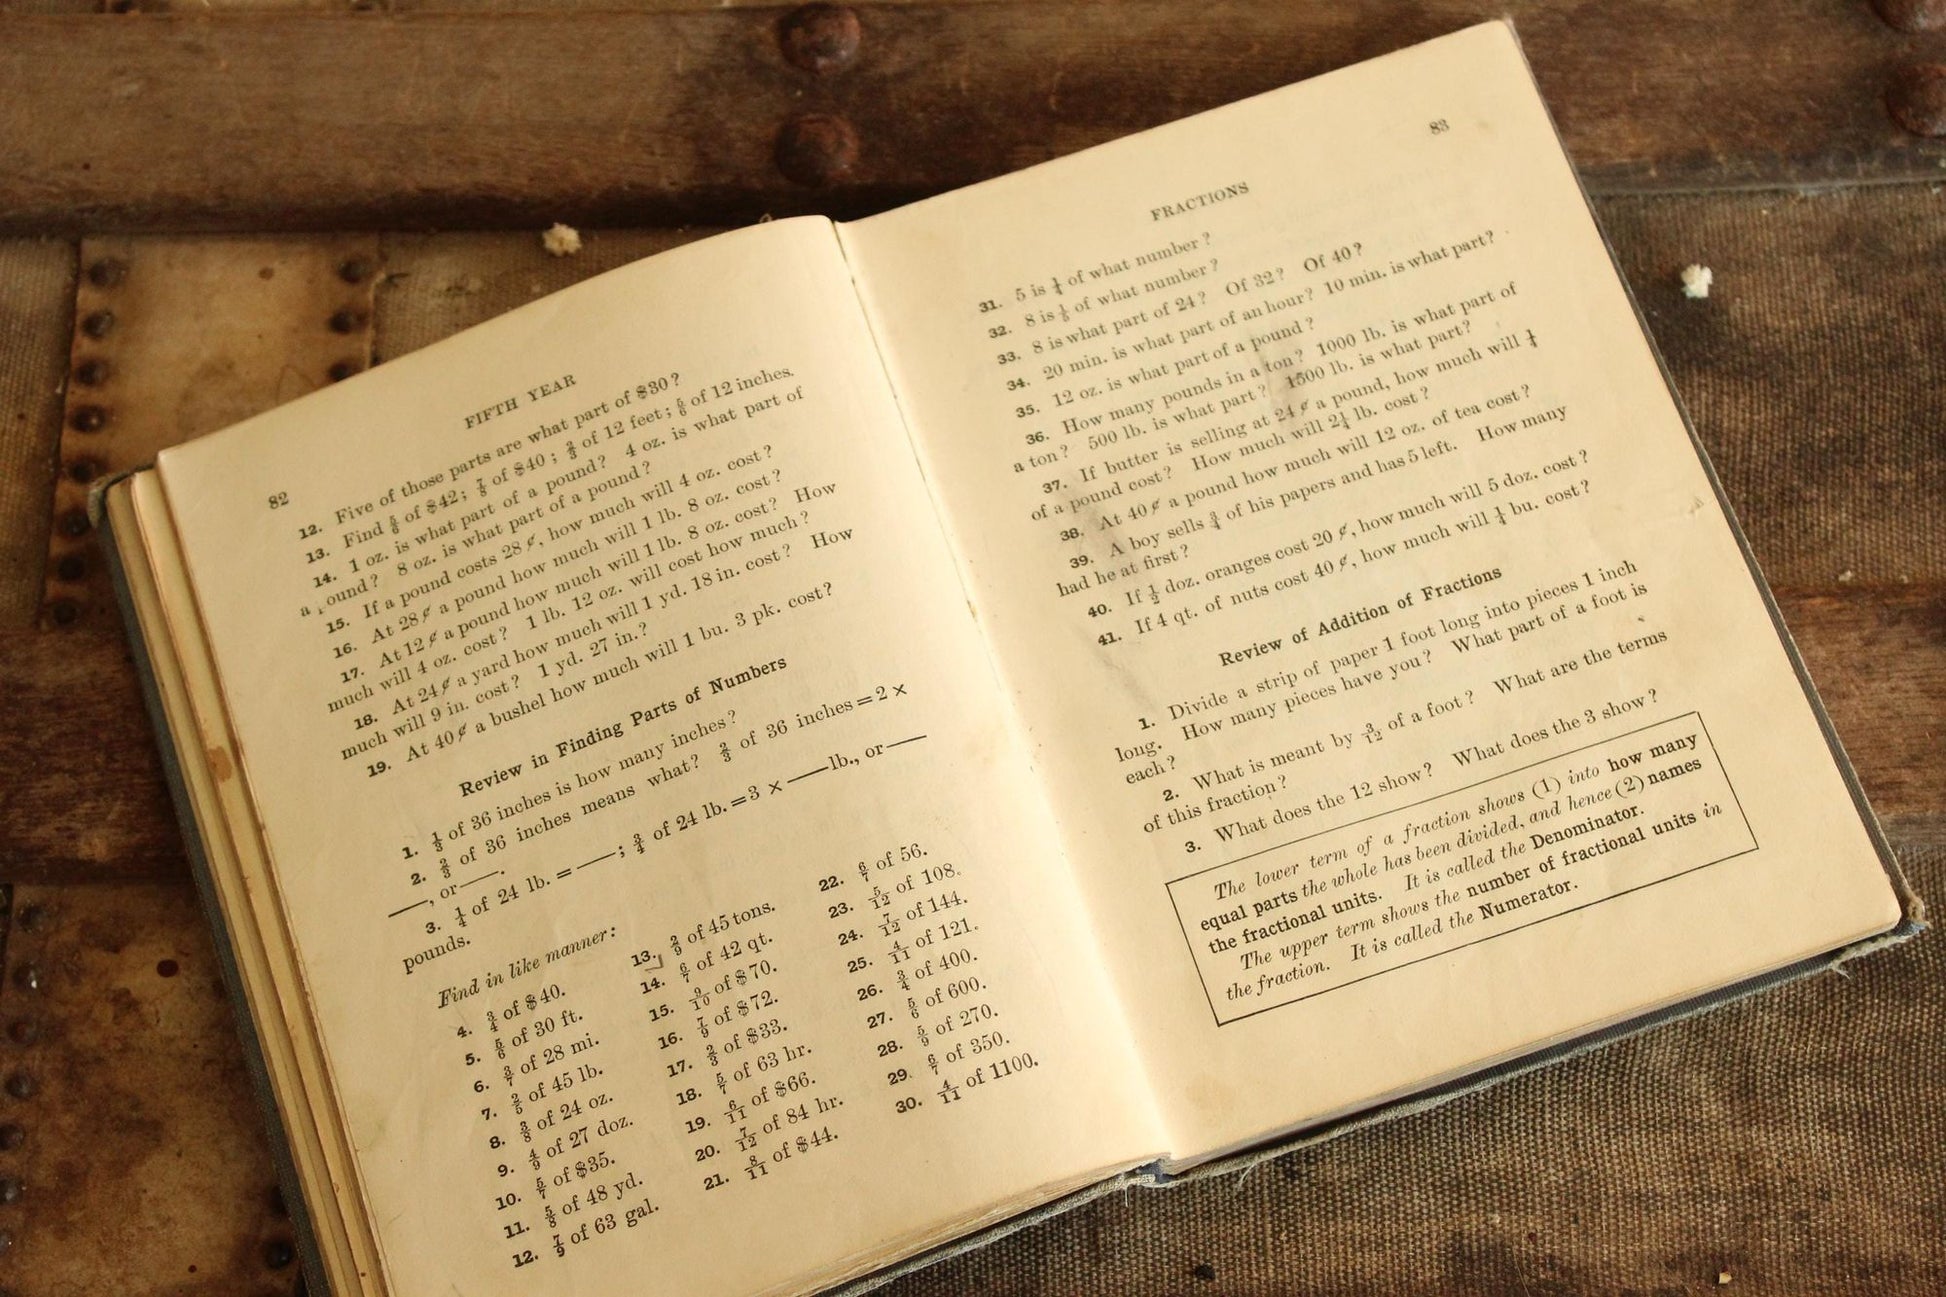 82
FIFTH YEAR
12. Five of those parts are what part of $30?
13. Find 5/6 of $42; 7/8 of $40; 2/3 of 12 feet; 5/6 of 12 inches.
14. 1 oz. is what part of a pound? 4 oz. is what part of
a pound? 8 oz. is what part of a pound?
15. If a pound costs 28 ¢, how much will 4 oz. cost?
16. At 28 ¢ a pound how much will 1 lb. 8 oz. cost?
17. At 12 ¢ a pound how much will 1 lb. 8 oz. cost? How
much will 4 oz. cost? 1 lb. 12 oz. will cost how much?
18. At 24 ¢ a yard how much will 1 yd. 18 in. cost? How
much will 9 in. cost? 1 yd. 27 in.?
19. At 40 ¢ a bushel how much will 1 bu. 3 pk. cost?
Review in Finding Parts of Numbers
1. 1/3 of 36 inches is how many inches?
2. 2/3 of 36 inches means what? 2/3 of 36 inches = 2 ×
——, or ——.
3. 1/4 of 24 lb. = ——; 3/4 of 24 lb. = 3 × —— lb., or ——
pounds.
Find in like manner:
4. 3/4 of $40.
5. 5/6 of 30 ft.
6. 3/7 of 28 mi.
7. 2/5 of 45 lb.
8. 3/8 of 24 oz.
9. 4/9 of 27 doz.
10. 5/7 of $35.
11. 5/8 of 48 yd.
12. 7/9 of 63 gal.
13. 2/9 of 45 tons.
14. 6/7 of 42 qt.
15. 9/10 of $70.
16. 7/9 of $72.
17. 2/3 of $33.
18. 5/7 of 63 hr.
19. 6/11 of $66.
20. 7/12 of 84 hr.
21. 8/11 of $44.
22. 6/7 of 56.
23. 5/12 of 108.
24. 7/12 of 144.
25. 4/11 of 121.
26. 3/4 of 400.
27. 5/6 of 600.
28. 5/9 of 270.
29. 6/7 of 350.
30. 4/11 of 1100.
83
FRACTIONS
31. 5 is 1/4 of what number?
32. 8 is of what number?
33. 8 is what part of 24? Of 32? Of 40?
34. 20 min. is what part of an hour? 10 min. is what part?
35. 12 oz. is what part of a pound?
36. How many pounds in a ton? 1000 lb. is what part of
a ton? 500 lb. is what part? 1500 lb. is what part?
37. If butter is selling at 24 ¢ a pound, how much will 1/4
of a pound cost? How much will 2 1/4 lb. cost?
38. At 40 ¢ a pound how much will 12 oz. of tea cost?
39. A boy sells 3/4 of his papers and has 5 left. How many
had he at first?
40. If 1/2 doz. oranges cost 20 ¢, how much will 5 doz. cost?
41. If 4 qt. of nuts cost 40 ¢, how much will 1/4 bu. cost?
Review of Addition of Fractions
1. Divide a strip of paper 1 foot long into pieces 1 inch
long. How many pieces have you? What part of a foot is
each?
2. What is meant by 3/12 of a foot? What are the terms
of this fraction?
3. What does the 12 show? What does the 3 show?
The lower term of a fraction shows (1) into how many
equal parts the whole has been divided, and hence (2) names
the fractional units. It is called the Denominator.
The upper term shows the number of fractional units in
the fraction. It is called the Numerator.